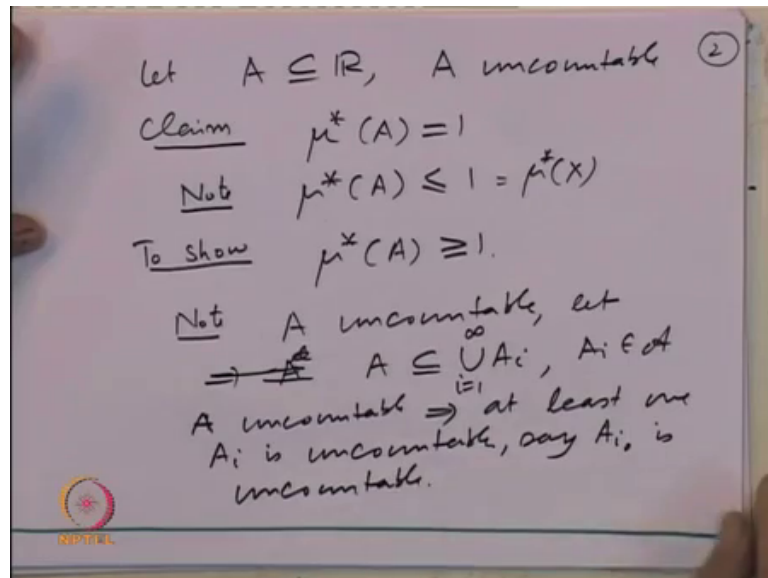 Let A ⊆ ℝ, A uncountable ②
Claim μ*(A) = 1
Note μ*(A) ≤ 1 = μ*(X)
To show μ*(A) ≥ 1.
Not A uncountable, let
⇒ A A ⊆ ∞⋃i=1 Ai, Ai ∈ 𝒜
A uncountable ⇒ at least one
Ai is uncountable, say Ai₀ is
uncountable.
NPTEL